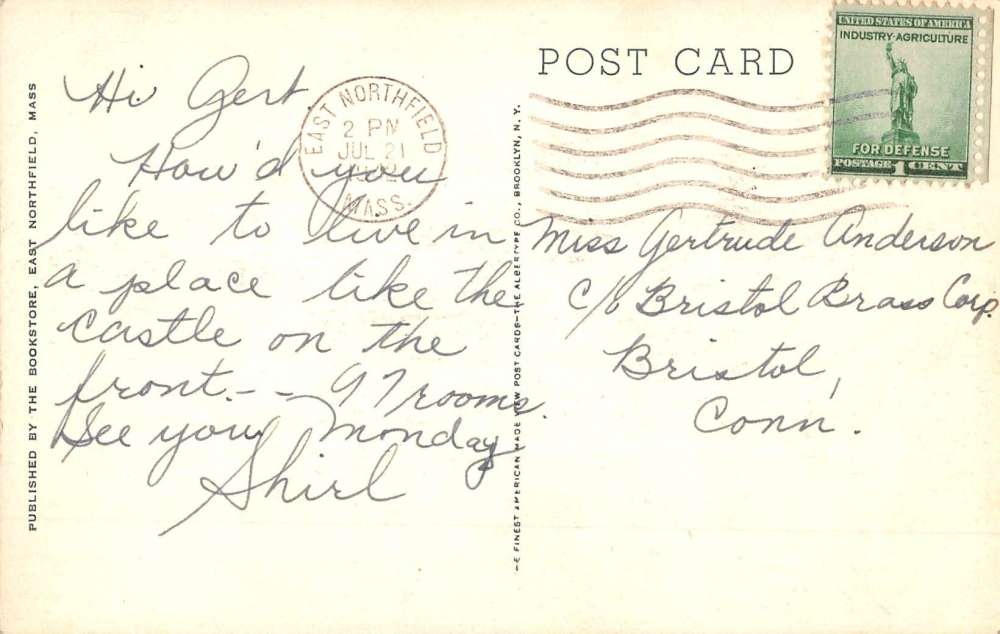 PUBLISHED BY THE BOOKSTORE, EAST NORTHFIELD, MASS
Hi Gert,
How'd you
like to live in
a place like the
castle on the
front. - - 97 rooms.
See you Monday
Shirl
EAST NORTHFIELD
2 PM
JUL 21
MASS.
FINEST AMERICAN MADE VIEW POST CARDS—THE ALBERTYPE CO., BROOKLYN, N. Y.
POST CARD
UNITED STATES OF AMERICA
INDUSTRY·AGRICULTURE
FOR DEFENSE
POSTAGE 1 CENT
Miss Gertrude Anderson
c/o Bristol Brass Corp.
Bristol,
Conn.